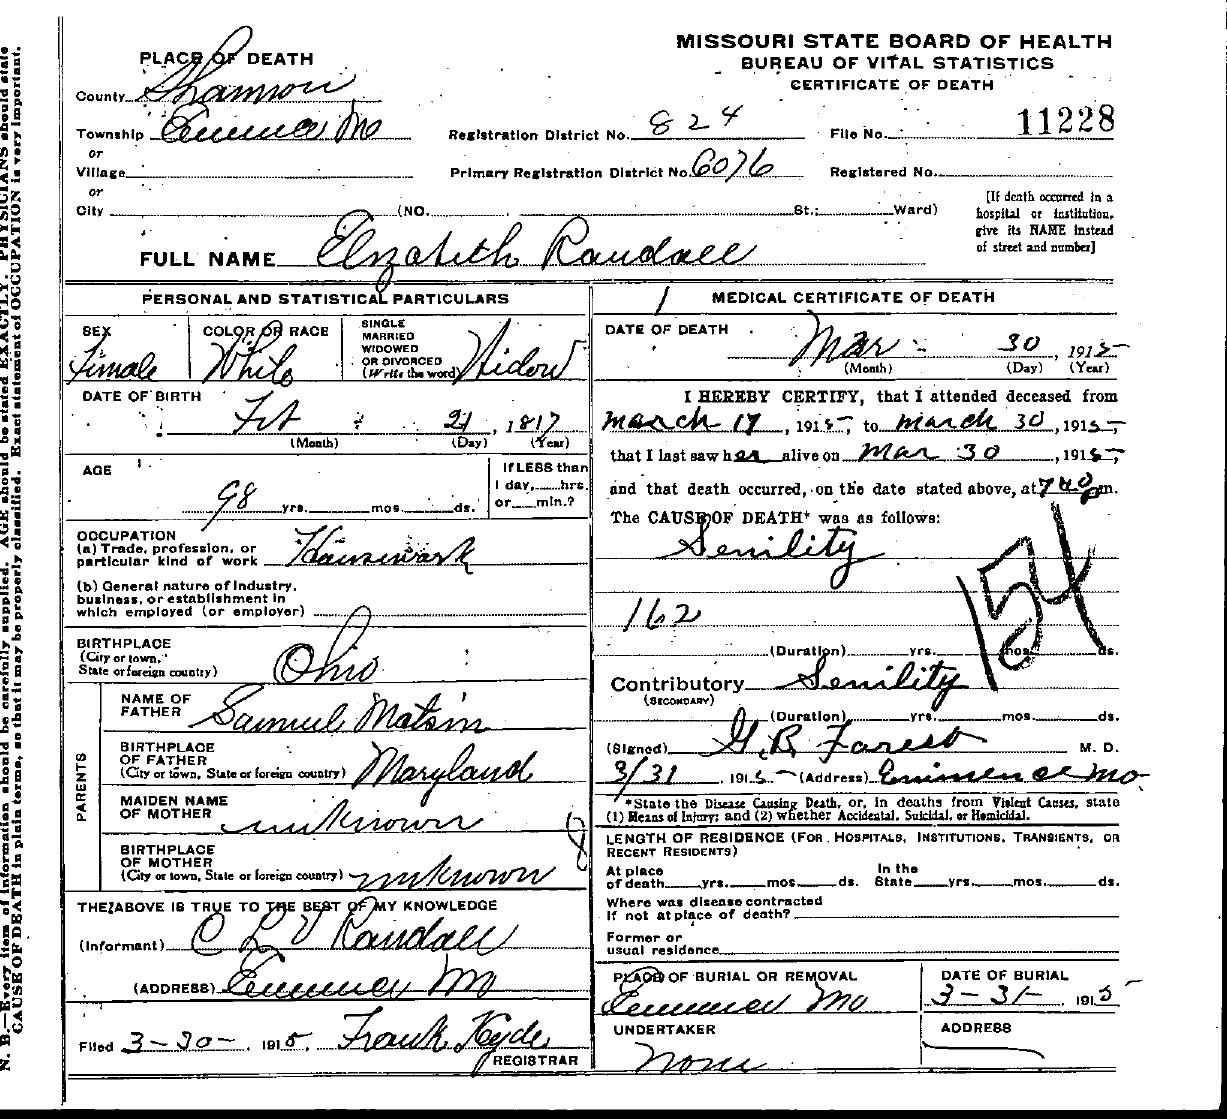 MISSOURI STATE BOARD OF HEALTH
BUREAU OF VITAL STATISTICS
CERTIFICATE OF DEATH
PLACE OF DEATH
County Shannon
Township Eminence Mo
or
Village
or
City (NO. St.; Ward)
Registration District No. 824
File No. 11228
Primary Registration District No. 6076
Registered No.
[If death occurred in a
hospital or institution,
give its NAME instead
of street and number]
FULL NAME Elizabeth Randall
PERSONAL AND STATISTICAL PARTICULARS
SEX
Female
COLOR OR RACE
White
SINGLE
MARRIED
WIDOWED
OR DIVORCED
(Write the word) Widow
DATE OF BIRTH
Feb 21, 1817
(Month) (Day) (Year)
AGE
98 yrs. mos. ds.
If LESS than
1 day, hrs.
or min.?
OCCUPATION
(a) Trade, profession, or
particular kind of work Housework
(b) General nature of Industry,
business, or establishment in
which employed (or employer)
BIRTHPLACE
(City or town,
State or foreign country) Ohio
PARENTS
NAME OF
FATHER Samuel
BIRTHPLACE
OF FATHER
(City or town, State or foreign country) Maryland
MAIDEN NAME
OF MOTHER unknown
BIRTHPLACE
OF MOTHER
(City or town, State or foreign country) unknown
THE ABOVE IS TRUE TO THE BEST OF MY KNOWLEDGE
(Informant) Randall
(ADDRESS) Eminence Mo
Filed 3-30-, 1915, Frank Hyde
REGISTRAR
MEDICAL CERTIFICATE OF DEATH
DATE OF DEATH
Mar 30, 1915
(Month) (Day) (Year)
I HEREBY CERTIFY, that I attended deceased from
March 17, 1915, to March 30, 1915,
that I last saw her alive on Mar 30, 1915,
and that death occurred, on the date stated above, at 740 pm.
The CAUSE OF DEATH* was as follows:
Senility
154
162
(Duration) yrs. mos. ds.
Contributory Senility
(SECONDARY)
(Duration) yrs. mos. ds.
(Signed) G.B. Forest M. D.
3/31, 1915 (Address) Eminence Mo
*State the Disease Causing Death, or, in deaths from Violent Causes, state
(1) Means of Injury; and (2) whether Accidental, Suicidal, or Homicidal.
LENGTH OF RESIDENCE (FOR HOSPITALS, INSTITUTIONS, TRANSIENTS, OR
RECENT RESIDENTS)
At place
of death yrs. mos. ds.
In the
State yrs. mos. ds.
Where was disease contracted
If not at place of death?
Former or
usual residence
PLACE OF BURIAL OR REMOVAL
Eminence Mo
DATE OF BURIAL
3-31-1915
UNDERTAKER
None
ADDRESS
N. B.—Every item of information should be carefully supplied. AGE should be stated EXACTLY. PHYSICIANS should state
CAUSE OF DEATH in plain terms, so that it may be properly classified. Exact statement of OCCUPATION is very important.